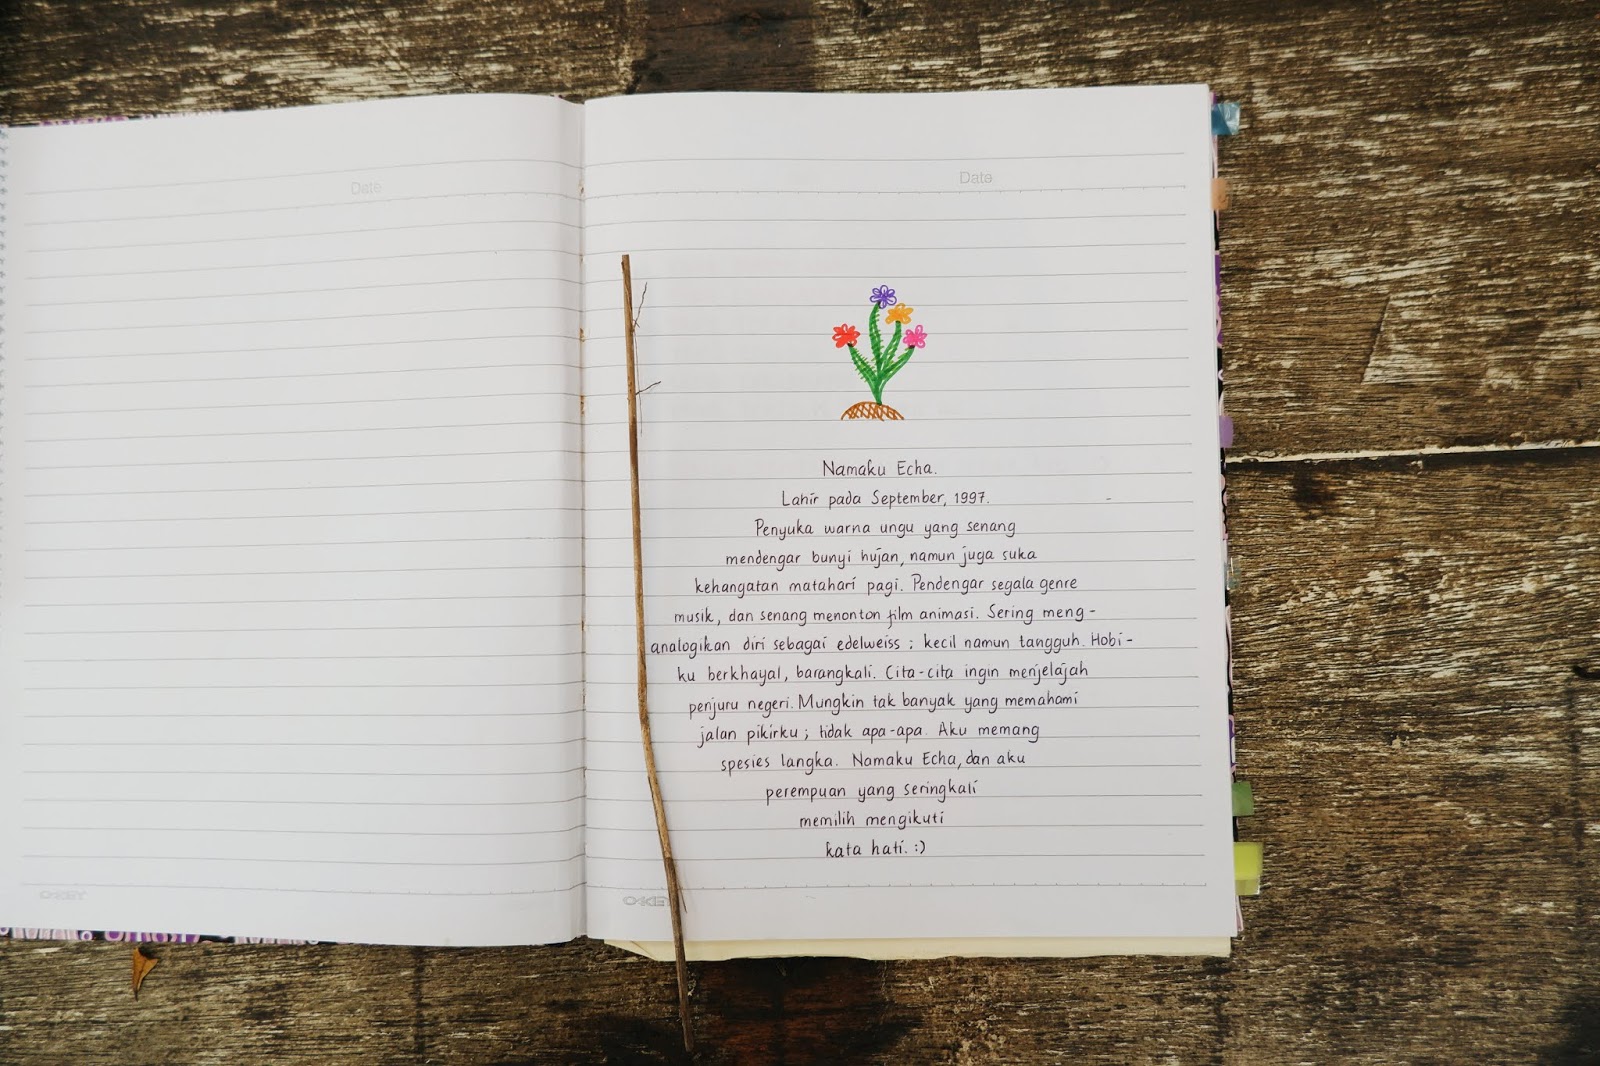 Date
Date
Namaku Echa.
Lahir pada September, 1997.
Penyuka warna ungu yang senang
mendengar bunyi hujan, namun juga suka
kehangatan matahari pagi. Pendengar segala genre
musik, dan senang menonton film animasi. Sering meng-
analogikan diri sebagai edelweiss ; kecil namun tangguh. Hobi-
ku berkhayal, barangkali. Cita-cita ingin menjelajah
penjuru negeri. Mungkin tak banyak yang memahami
jalan pikirku ; tidak apa-apa. Aku memang
spesies langka. Namaku Echa, dan aku
perempuan yang seringkali
memilih mengikuti
kata hati. :)